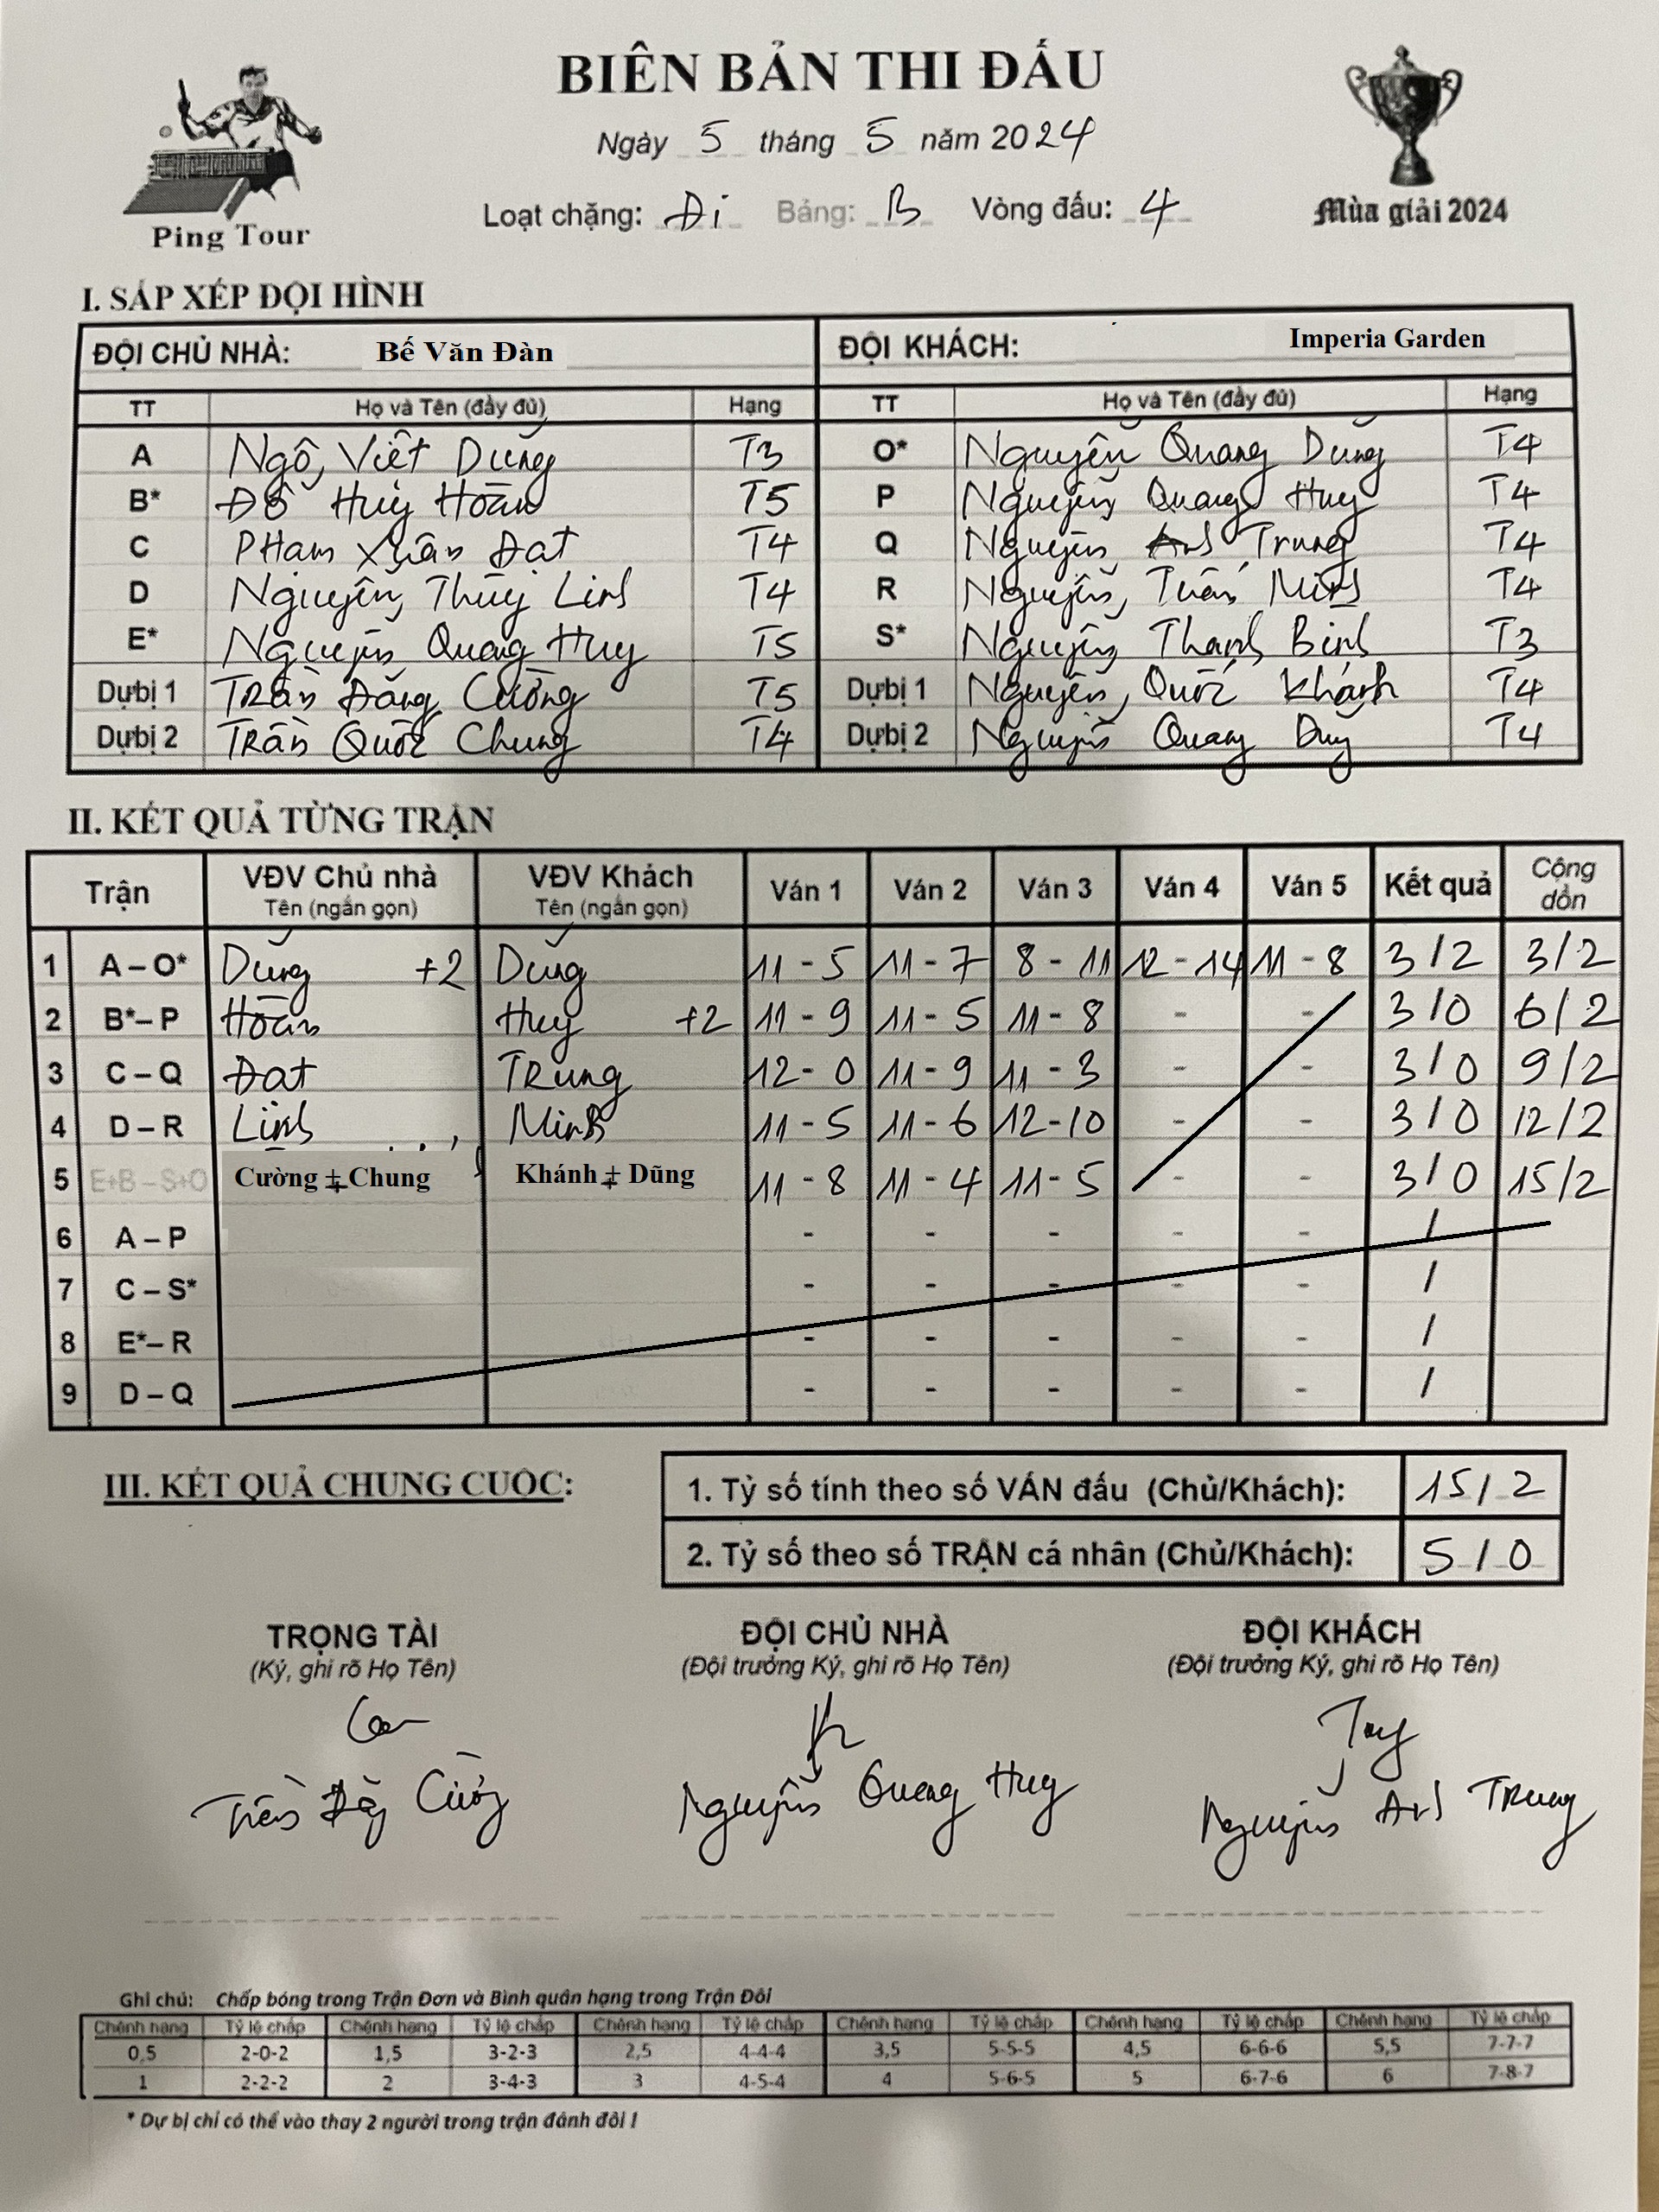 BIÊN BẢN THI ĐẤU
Ngày 5 tháng 5 năm 2024
Loạt chặng: Đi Bảng: B Vòng đấu: 4
Ping Tour
Mùa giải 2024
I. SẮP XẾP ĐỘI HÌNH
ĐỘI CHỦ NHÀ: Bế Văn Đàn ĐỘI KHÁCH: Imperia Garden
TT Họ và Tên (đầy đủ) Hạng TT Họ và Tên (đầy đủ) Hạng
A Ngô Viết Dũng T3 O* Nguyễn Quang Dũng T4
B* Đỗ Huy Hoàn T5 P Nguyễn Quang Huy T4
C Phạm Xuân Đạt T4 Q Nguyễn Anh Trung T4
D Nguyễn Thùy Linh T4 R Nguyễn Tuấn Minh T4
E* Nguyễn Quang Huy T5 S* Nguyễn Thanh Bình T3
Dự bị 1 Trần Đăng Cường T5 Dự bị 1 Nguyễn Quốc Khánh T4
Dự bị 2 Trần Quốc Chung T4 Dự bị 2 Nguyễn Quang Duy T4
II. KẾT QUẢ TỪNG TRẬN
Trận VĐV Chủ nhà VĐV Khách Ván 1 Ván 2 Ván 3 Ván 4 Ván 5 Kết quả Cộng dồn
Tên (ngắn gọn) Tên (ngắn gọn)
1 A – O* Dũng +2 Dũng 11 - 5 11 - 7 8 - 11 12 - 14 11 - 8 3 / 2 3 / 2
2 B* – P Hoàn Huy +2 11 - 9 11 - 5 11 - 8 - - 3 / 0 6 / 2
3 C – Q Đạt Trung 12 - 0 11 - 9 11 - 3 - - 3 / 0 9 / 2
4 D – R Linh Minh 11 - 5 11 - 6 12 - 10 - - 3 / 0 12 / 2
5 E+B – S+O Cường + Chung Khánh + Dũng 11 - 8 11 - 4 11 - 5 - - 3 / 0 15 / 2
6 A – P - - - - - /
7 C – S* - - - - - /
8 E* – R - - - - - /
9 D – Q - - - - - /
III. KẾT QUẢ CHUNG CUỘC:
1. Tỷ số tính theo số VÁN đấu (Chủ/Khách): 15 / 2
2. Tỷ số theo số TRẬN cá nhân (Chủ/Khách): 5 / 0
TRỌNG TÀI ĐỘI CHỦ NHÀ ĐỘI KHÁCH
(Ký, ghi rõ Họ Tên) (Đội trưởng Ký, ghi rõ Họ Tên) (Đội trưởng Ký, ghi rõ Họ Tên)
Trần Đăng Cường Nguyễn Quang Huy Nguyễn Anh Trung
Ghi chú: Chấp bóng trong Trận Đơn và Bình quân hạng trong Trận Đôi
Chênh hạng Tỷ lệ chấp Chênh hạng Tỷ lệ chấp Chênh hạng Tỷ lệ chấp Chênh hạng Tỷ lệ chấp Chênh hạng Tỷ lệ chấp Chênh hạng Tỷ lệ chấp
0,5 2-0-2 1,5 3-2-3 2,5 4-4-4 3,5 5-5-5 4,5 6-6-6 5,5 7-7-7
1 2-2-2 2 3-4-3 3 4-5-4 4 5-6-5 5 6-7-6 6 7-8-7
* Dự bị chỉ có thể vào thay 2 người trong trận đánh đôi !